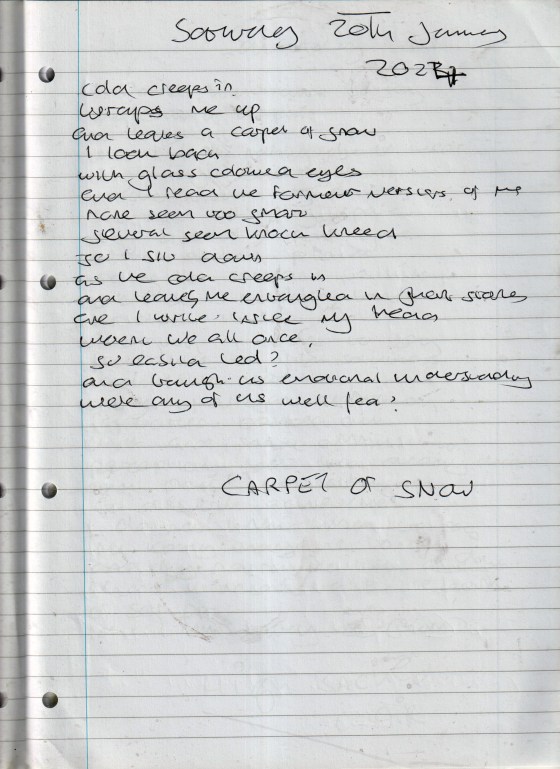 Saturday 20th January
2024
Cold creeps in
wraps me up
and leaves a carpet of snow
I look back
with glass coloured eyes
and I read the former versions of me
none seem too smart
several seem knock kneed
so I sit down
as the cold creeps in
and leaves me entangled in short stories
are I write inside my head
weren't we all once,
so easily led?
and through its emotional understanding
were any of us well fed?
CARPET OF SNOW